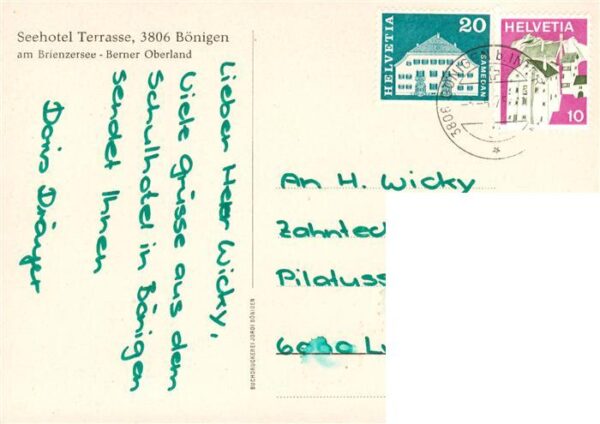 Seehotel Terrasse, 3806 Bönigen
am Brienzersee - Berner Oberland
Lieber Herr Wicky,
Viele Grüsse aus dem
Schulhotel in Bönigen
sendet Ihnen
Doris
BUCHDRUCKEREI JORDI BÖNIGEN
HELVETIA
20
SAMEDAN
HELVETIA
10
3806 BÖNIGEN b. INT
An H. Wicky
Zahntec
Pilatuss
6030 L